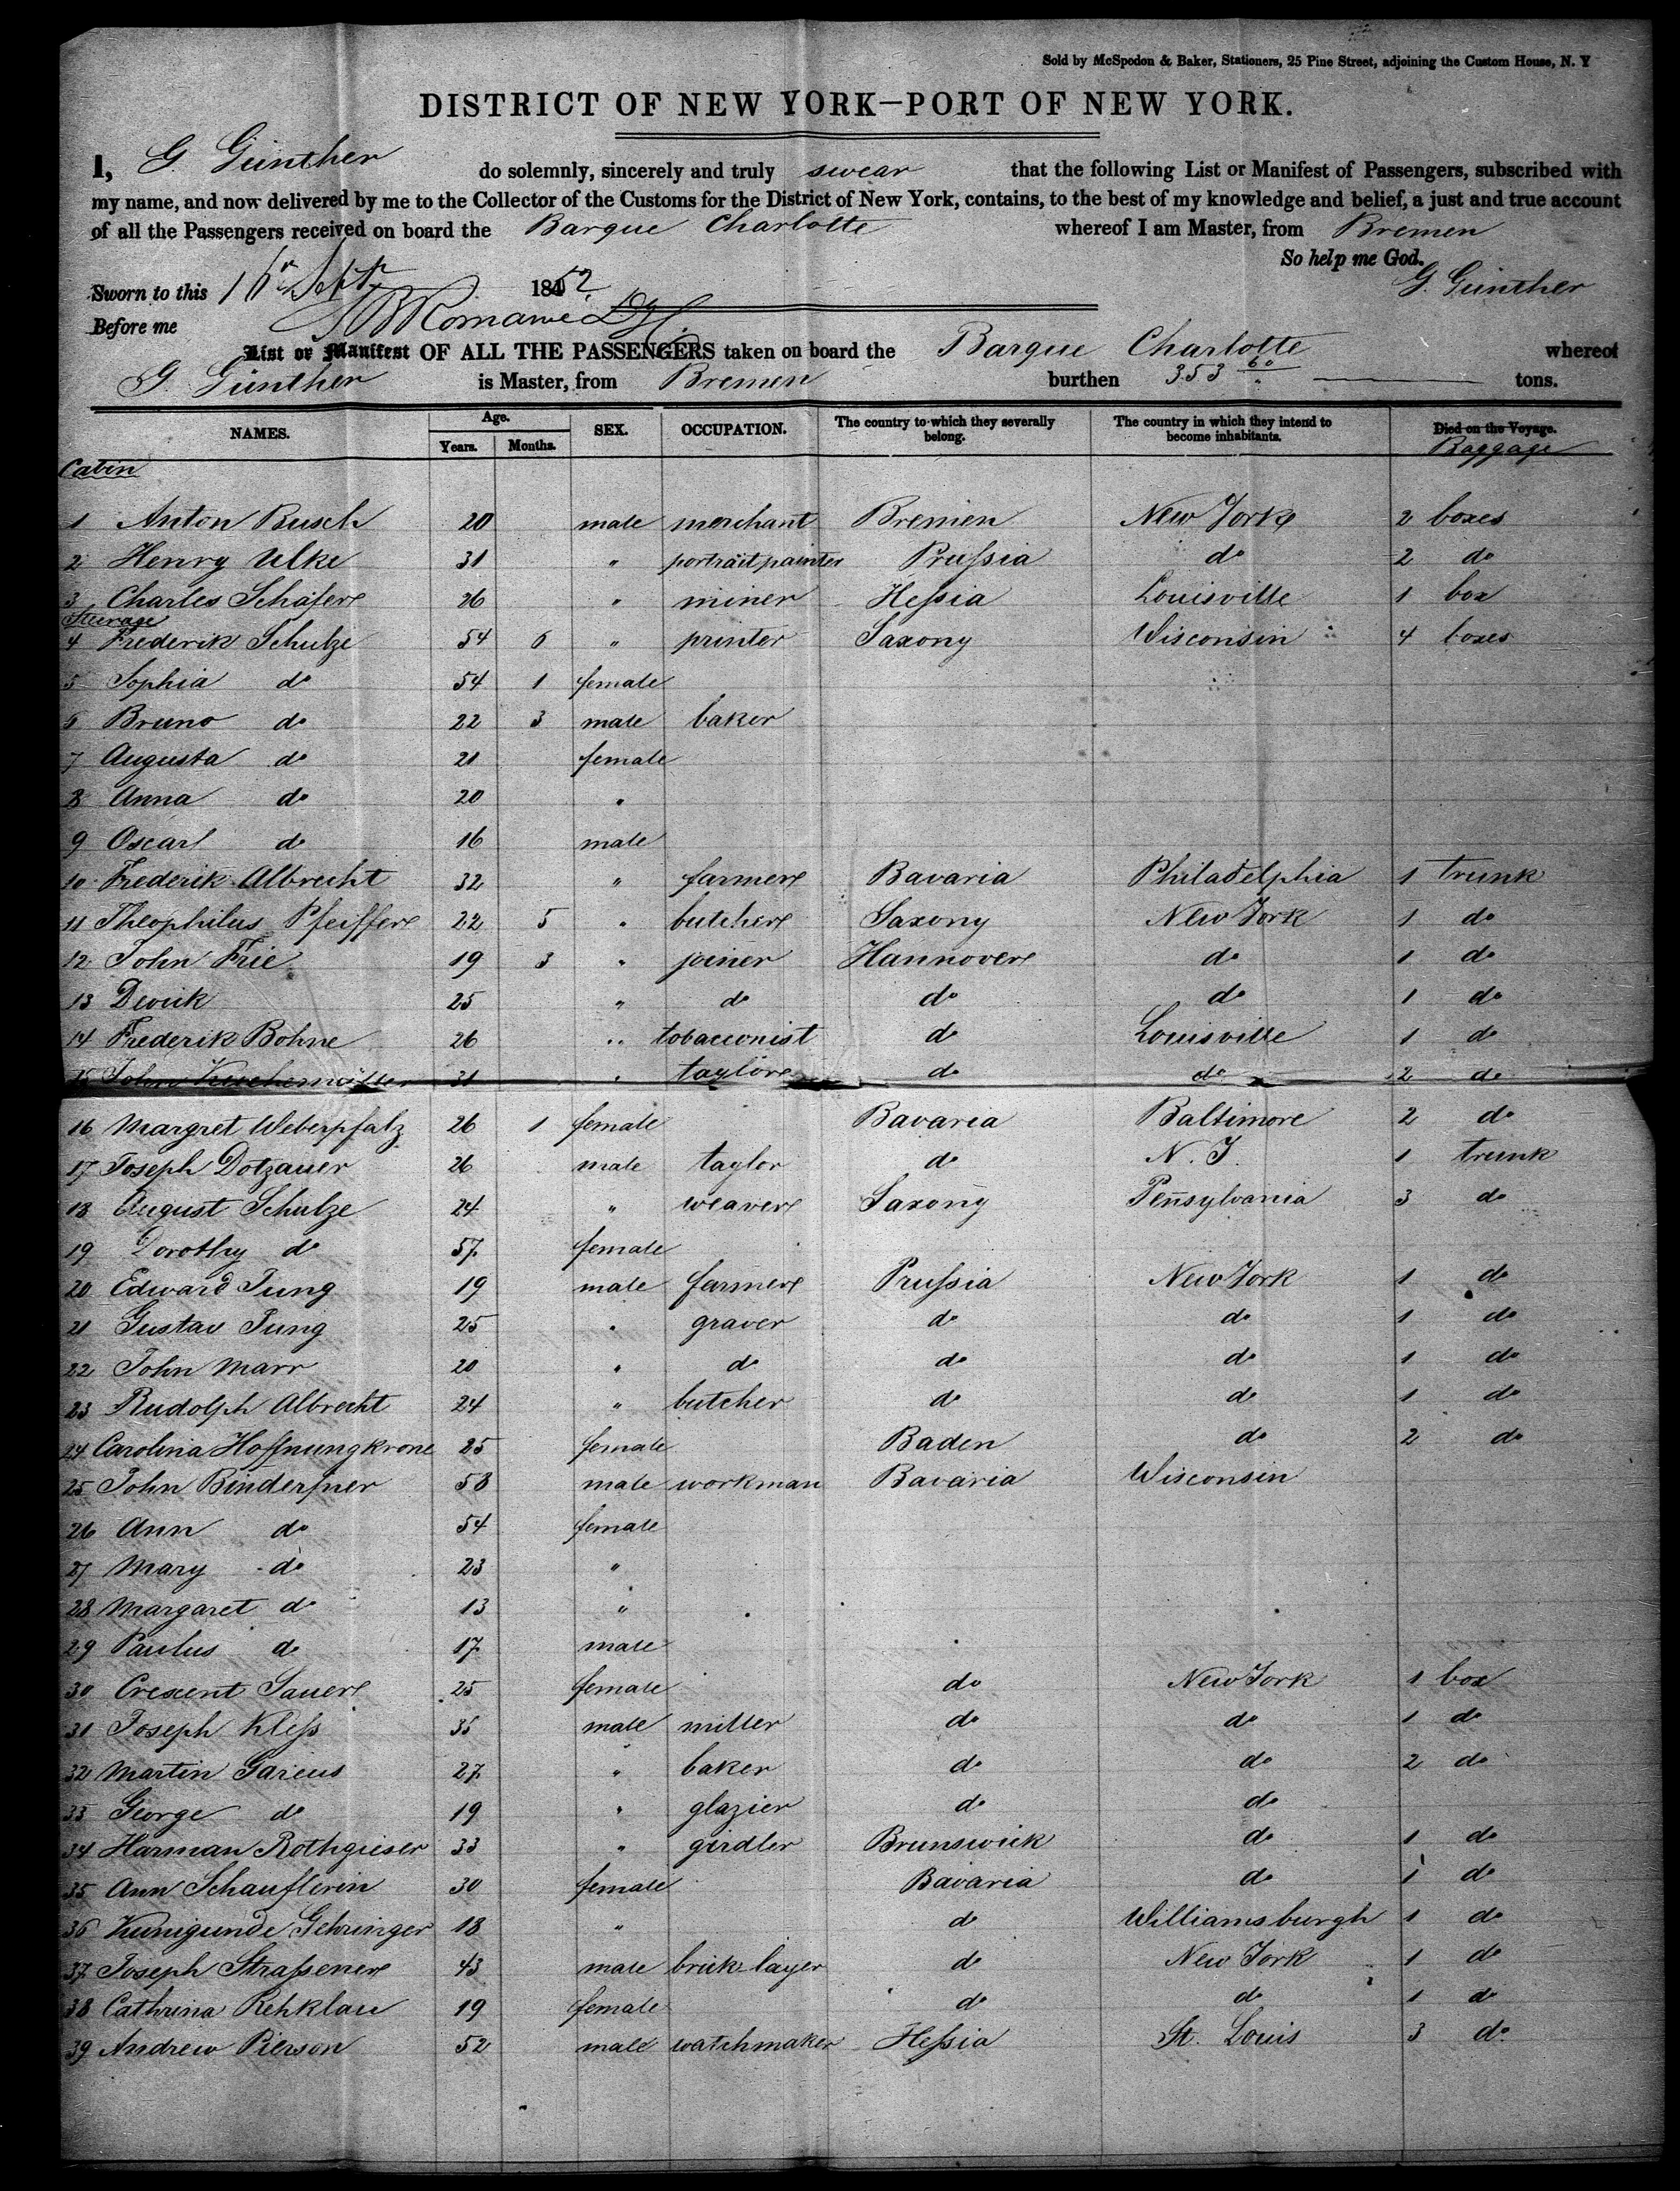 Sold by McSpedon & Baker, Stationers, 25 Pine Street, adjoining the Custom House, N. Y
DISTRICT OF NEW YORK—PORT OF NEW YORK.
I, G. Günther do solemnly, sincerely and truly swear that the following List or Manifest of Passengers, subscribed with
my name, and now delivered by me to the Collector of the Customs for the District of New York, contains, to the best of my knowledge and belief, a just and true account
of all the Passengers received on board the Barque Charlotte whereof I am Master, from Bremen
So help me God.
Sworn to this Sept 1852 G. Günther
Before me
List or Manifest OF ALL THE PASSENGERS taken on board the Barque Charlotte whereof
G. Günther is Master, from Bremen burthen 353 60 tons.
NAMES. Age. Years. Months. SEX. OCCUPATION. The country to which they severally belong. The country in which they intend to become inhabitants. Died on the Voyage. Baggage
Cabin
1 Anton Busch 20 male merchant Bremen New York 2 boxes
2 Henry Ulke 31 " portrait painter Prußia do 2 do
3 Charles Schäfer 26 " miner Heßia Louisville 1 box
Steerage
4 Frederik Schulze 54 6 " printer Saxony Wisconsin 4 boxes
5 Sophia do 54 1 female
6 Bruno do 22 3 male baker
7 Augusta do 21 female
8 Anna do 20 "
9 Oscar do 16 male
10 Frederik Albrecht 32 " farmer Bavaria Philadelphia 1 trunk
11 Theophilus Pfeiffer 22 5 " butcher Saxony New York 1 do
12 John Frie 19 3 " joiner Hannover do 1 do
13 25 " do do do 1 do
14 Frederik Bohne 26 " tobacconist do Louisville 1 do
15 John 31 " taylor do do 2 do
16 Margret Weberpfalz 26 1 female Bavaria Baltimore 2 do
17 Joseph Dotzauer 26 male taylor do N. Y. 1 trunk
18 August Schulze 24 " weaver Saxony Pennsylvania 3 do
19 Dorothy do 57 female
20 Edward Jung 19 male farmer Prußia New York 1 do
21 Gustav Jung 25 " graver do do 1 do
22 John Marr 20 " do do do 1 do
23 Rudolph Albrecht 24 " butcher do do 1 do
24 Carolina Hoffnungkrone 25 female Baden do 2 do
25 John Binderßner 58 male workman Bavaria Wisconsin
26 Ann do 54 female
27 Mary do 23 "
28 Margaret do 13 "
29 Paulus do 17 male
30 Crescent Sauer 25 female do New York 1 box
31 Joseph Kleß 35 male miller do do 1 do
32 Martin Gareus 27 " baker do do 2 do
33 George do 19 " glazier do do
34 Harman Rothgieser 33 " girdler Brunswick do 1 do
35 Ann Schauflerin 30 female Bavaria do 1 do
36 Kunigunde Gehringer 18 " do Williamsburgh 1 do
37 Joseph Straßener 43 male brick layer do New York 1 do
38 Cathrina Rehklau 19 female do do 1 do
39 Andrew Pierson 52 male watchmaker Heßia St. Louis 3 do